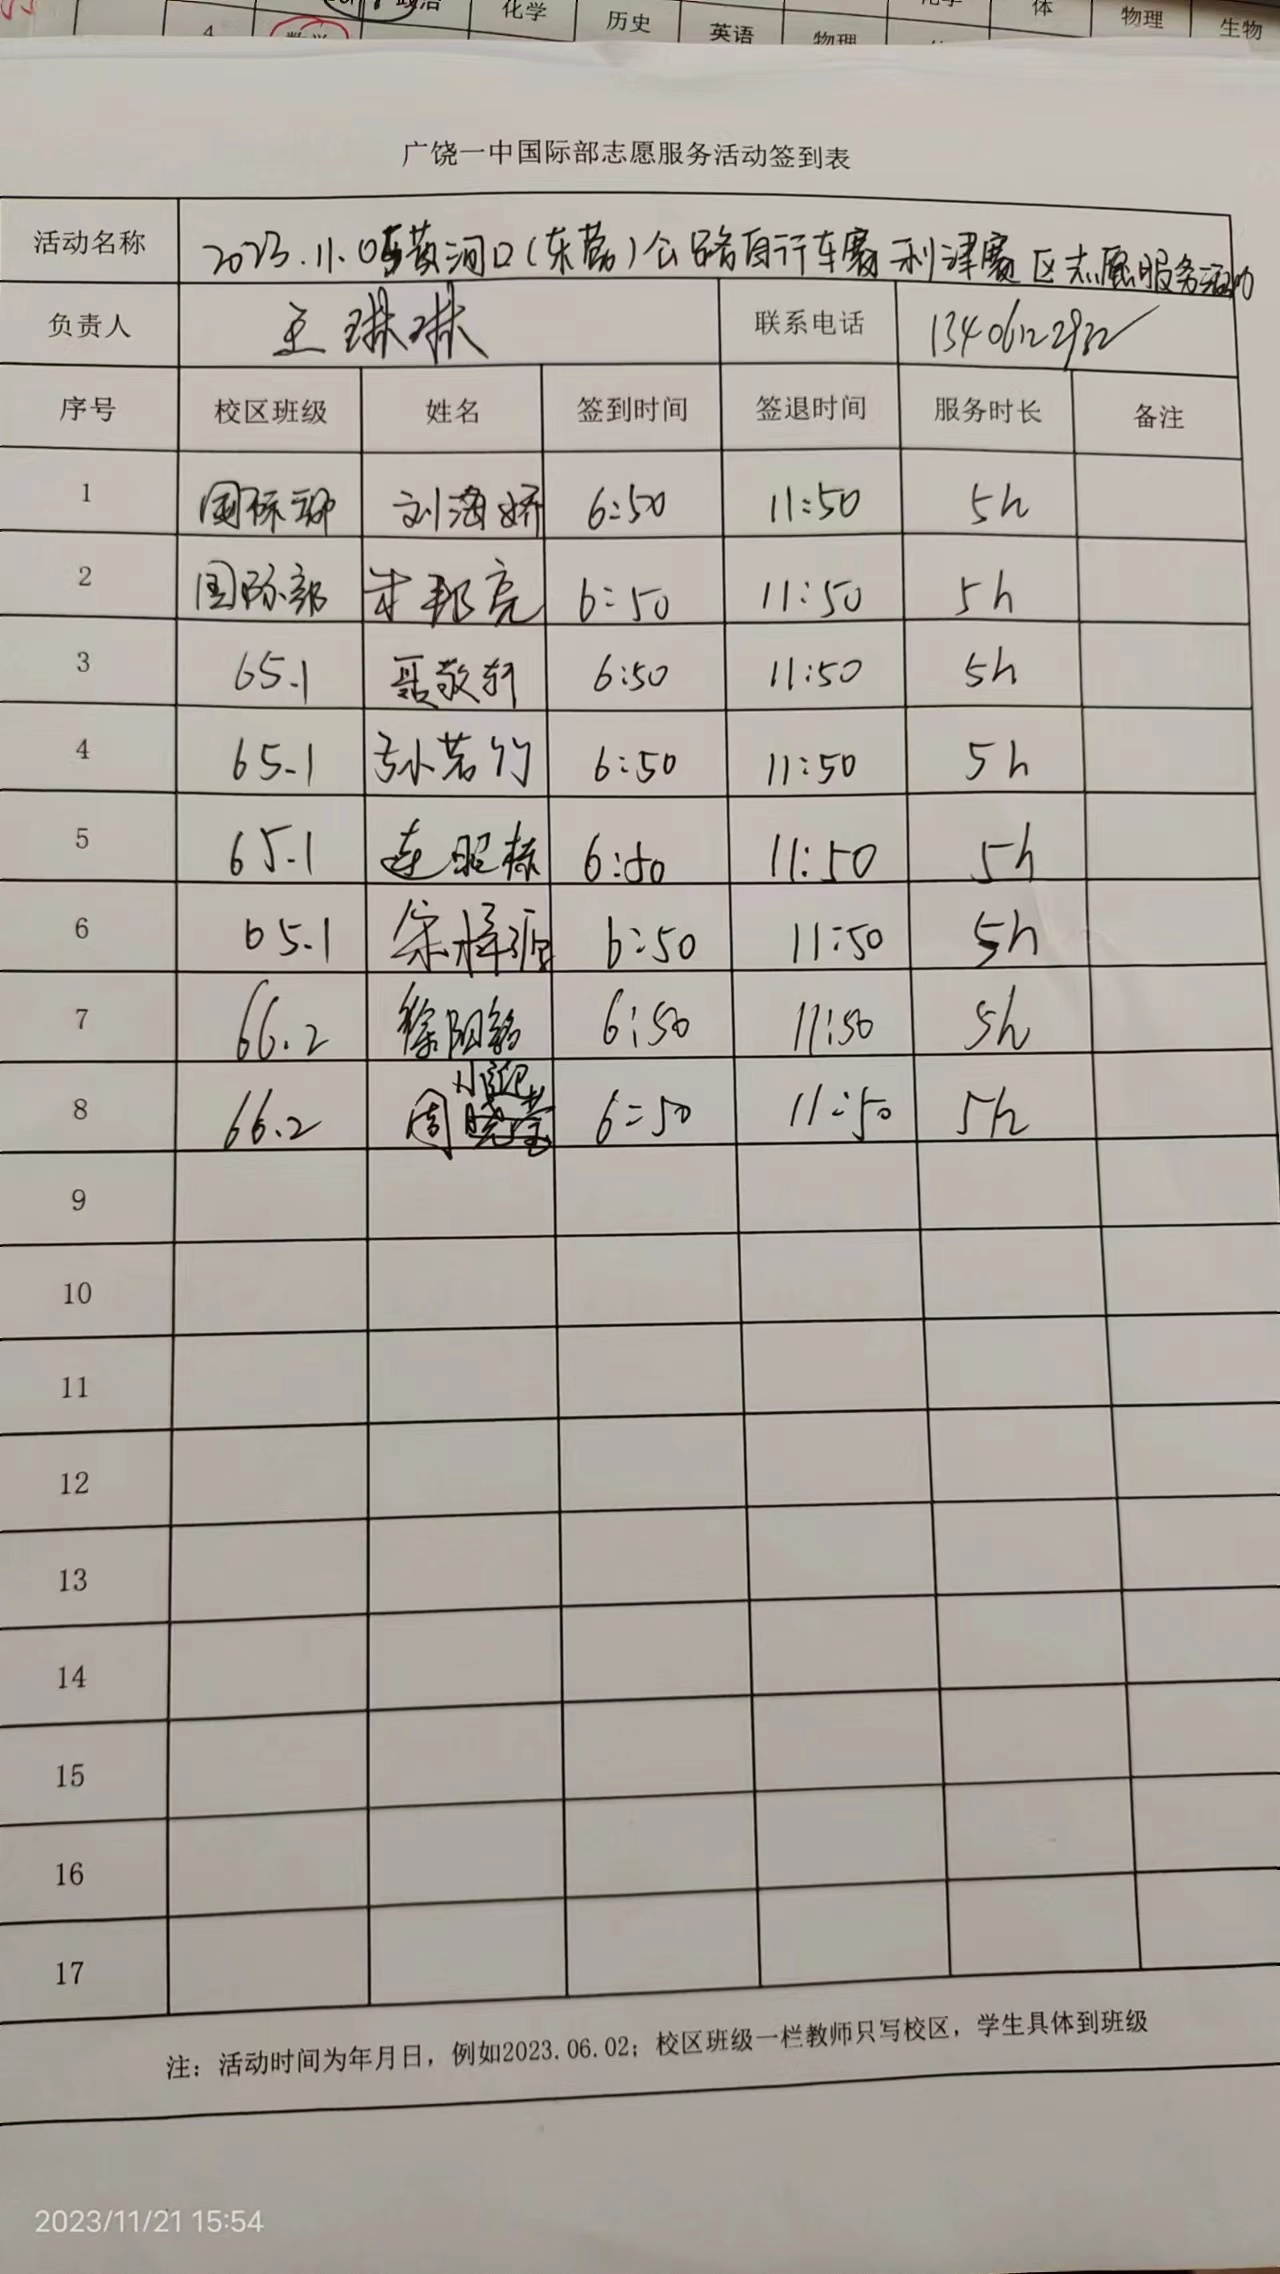 政治 化学 历史 英语 物理 体 物理 生物
4
广饶一中国际部志愿服务活动签到表
活动名称 2023.11.05黄河口(东营)公路自行车赛利津赛区志愿服务活动
负责人 王琳琳 联系电话 13406122932
序号 校区班级 姓名 签到时间 签退时间 服务时长 备注
1 国际部 刘海娇 6:50 11:50 5h
2 国际部 邦亮 6:50 11:50 5h
3 65.1 聂敬轩 6:50 11:50 5h
4 65.1 孙若竹 6:50 11:50 5h
5 65.1 连昭栋 6:50 11:50 5h
6 65.1 宋梓源 6:50 11:50 5h
7 66.2 徐阳铭 6:50 11:50 5h
8 66.2 周 6:50 11:50 5h
9
10
11
12
13
14
15
16
17
注：活动时间为年月日，例如2023.06.02；校区班级一栏教师只写校区，学生具体到班级
2023/11/21 15:54